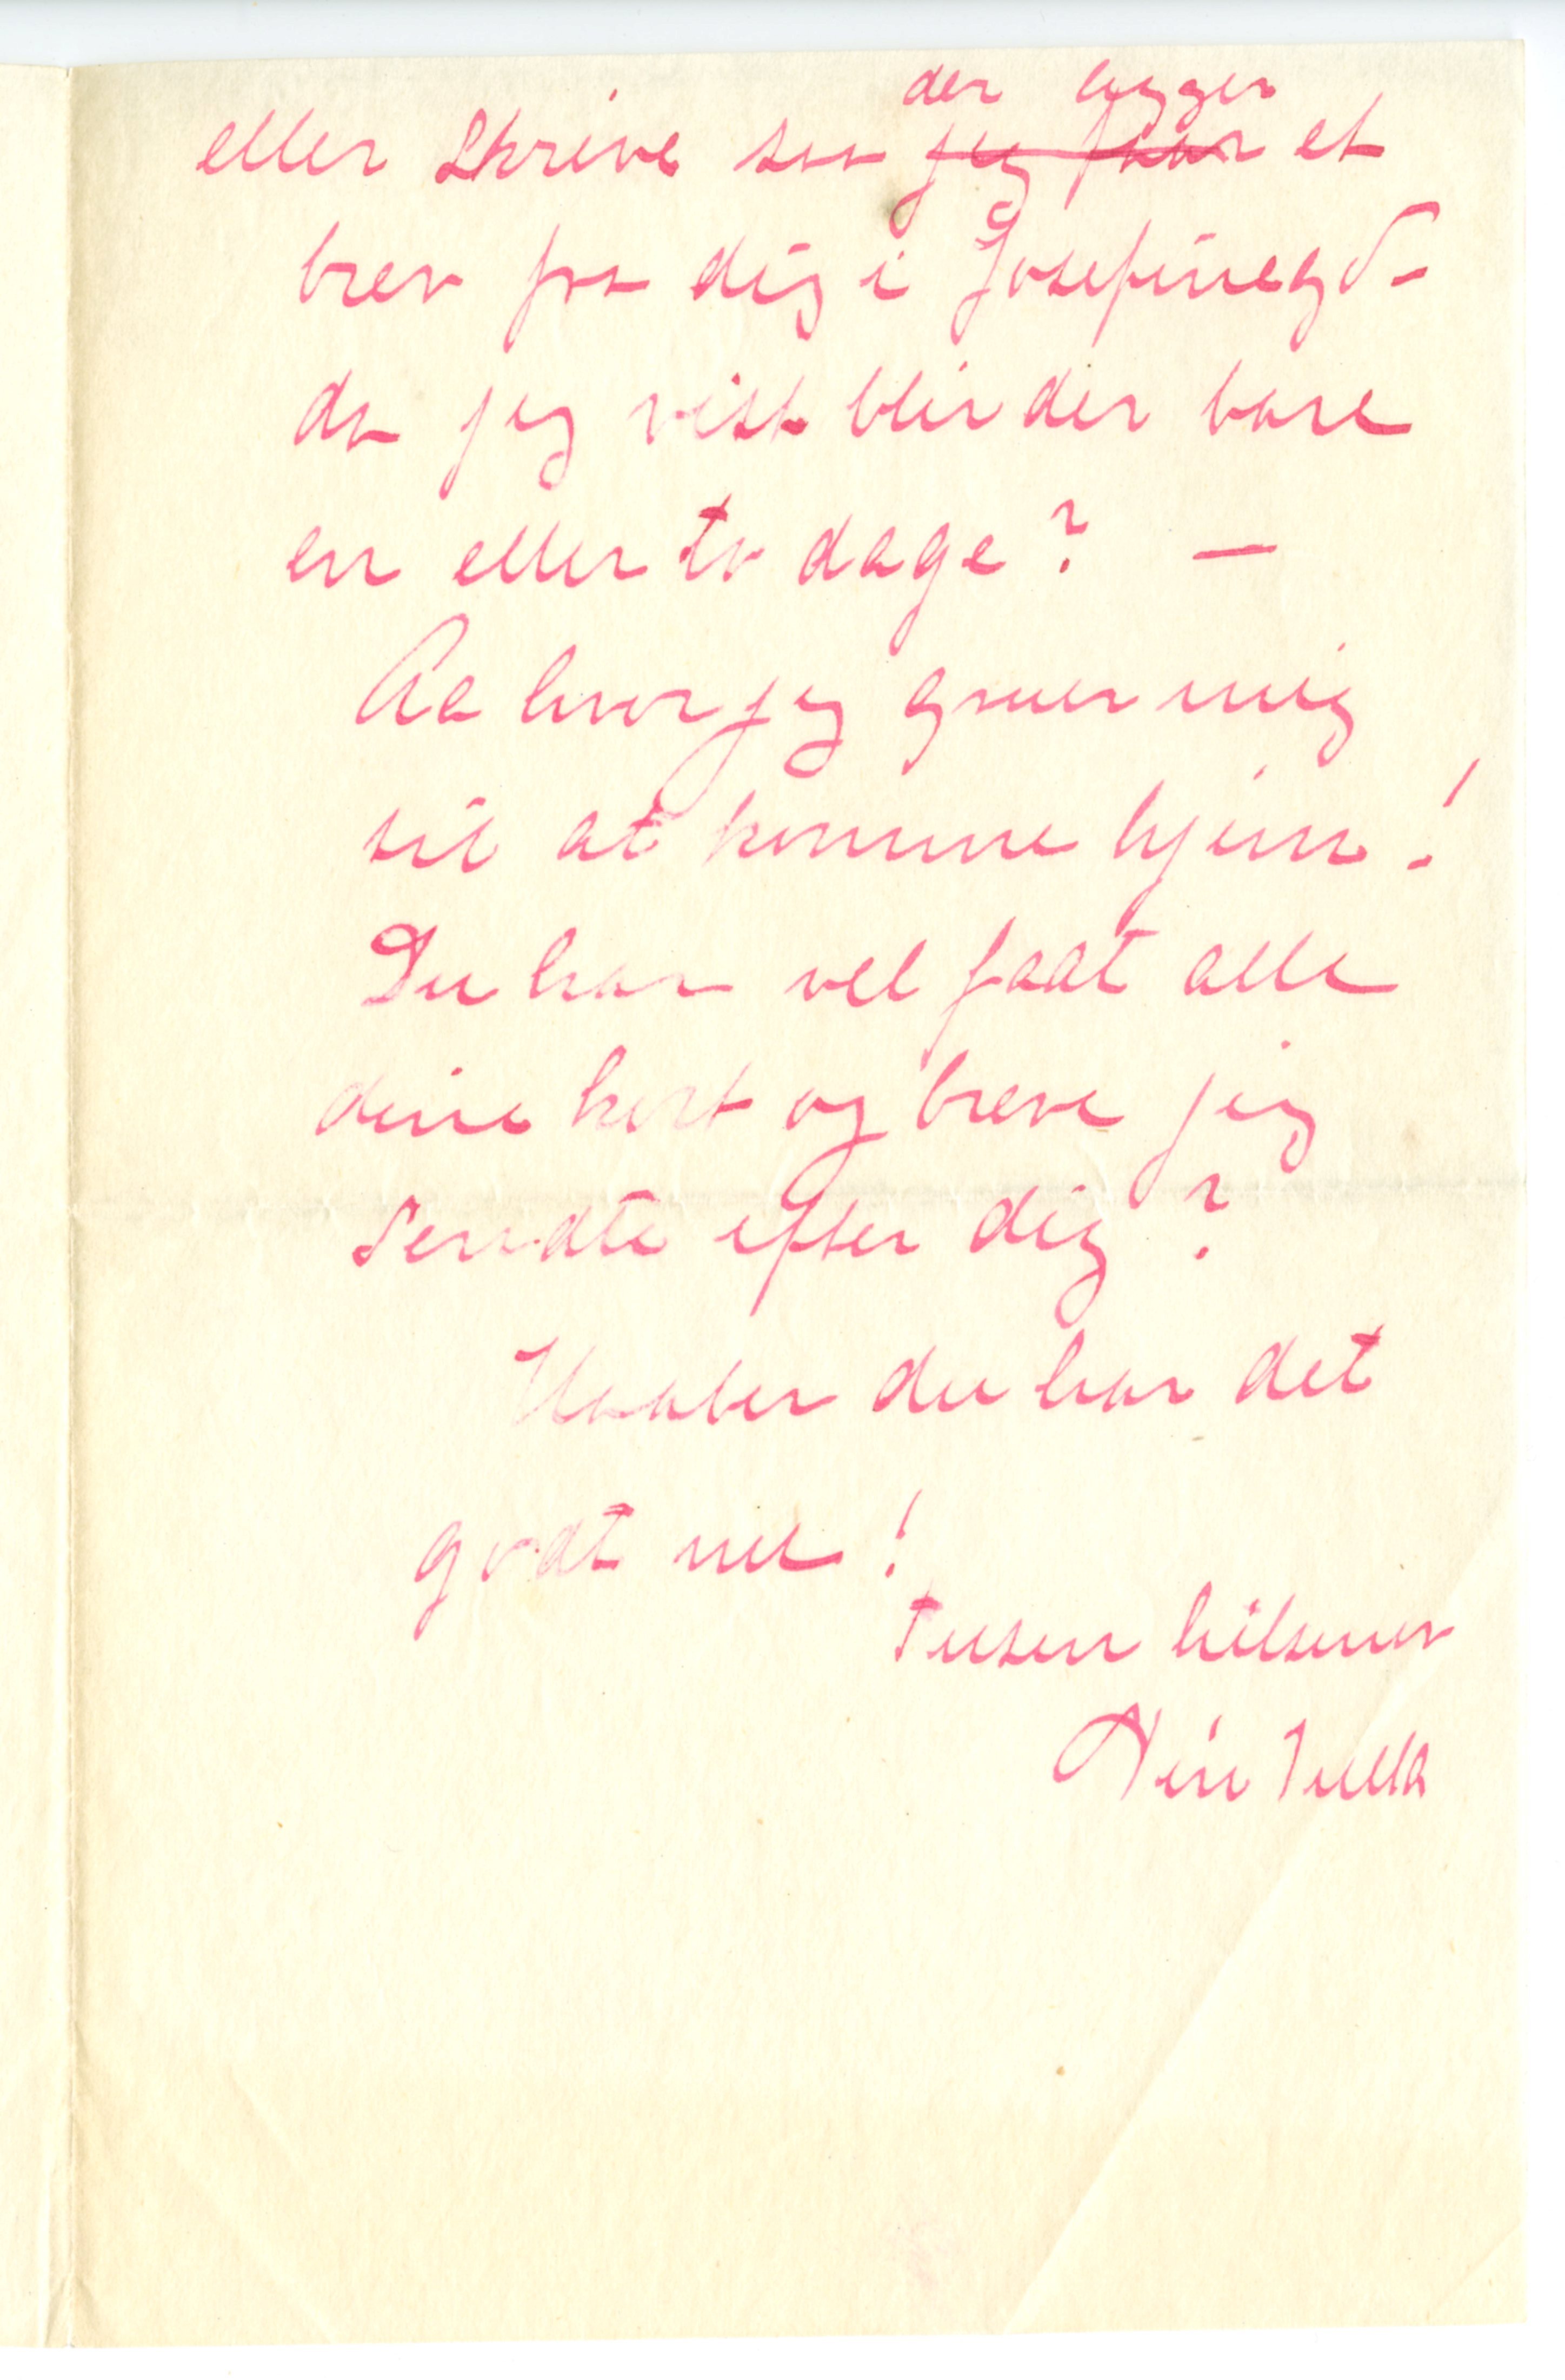 der ligger
eller skrive saa jeg faar et
brev fra dig i Josefinegd.
da jeg visst blir der bare
en eller to dage? —
Aa hvor jeg gruer mig
til at komme hjem!
Du har vel faat alle
dine kort og breve jeg
sendte efter dig?
Haaber du har det
godt nu!
Tusen hilsener
Din Tulla